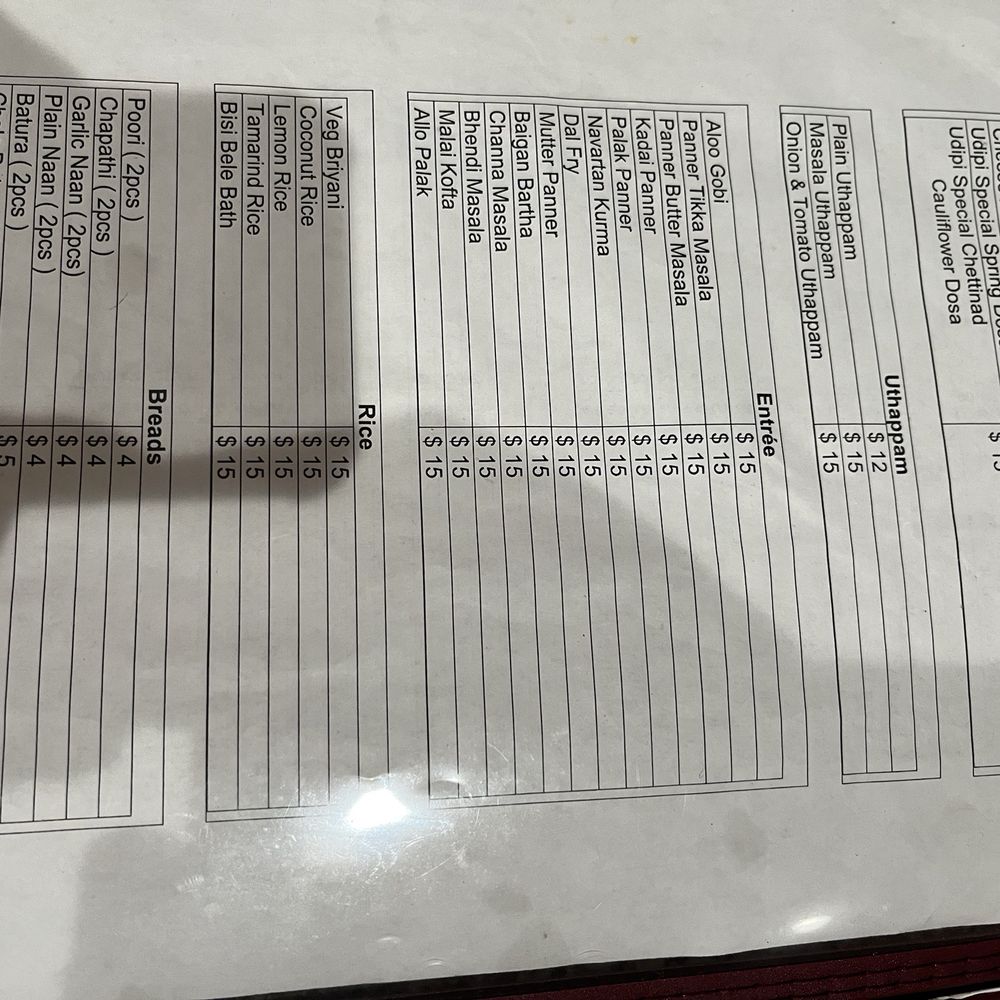 Udipi Special Spring
Udipi Special Chettinad
Cauliflower Dosa
Uthappam
Plain Uthappam $ 12
Masala Uthappam $ 15
Onion & Tomato Uthappam $ 15
Entrée
Aloo Gobi $ 15
Panner Tikka Masala $ 15
Panner Butter Masala $ 15
Kadai Panner $ 15
Palak Panner $ 15
Navartan Kurma $ 15
Dal Fry $ 15
Mutter Panner $ 15
Baigan Bartha $ 15
Channa Masala $ 15
Bhendi Masala $ 15
Malai Kofta $ 15
Allo Palak $ 15
Rice
Veg Briyani $ 15
Coconut Rice $ 15
Lemon Rice $ 15
Tamarind Rice $ 15
Bisl Bele Bath $ 15
Breads
Poori ( 2pcs ) $ 4
Chapathi ( 2pcs ) $ 4
Garlic Naan ( 2pcs) $ 4
Plain Naan ( 2pcs ) $ 4
Batura ( 2pcs ) $ 5